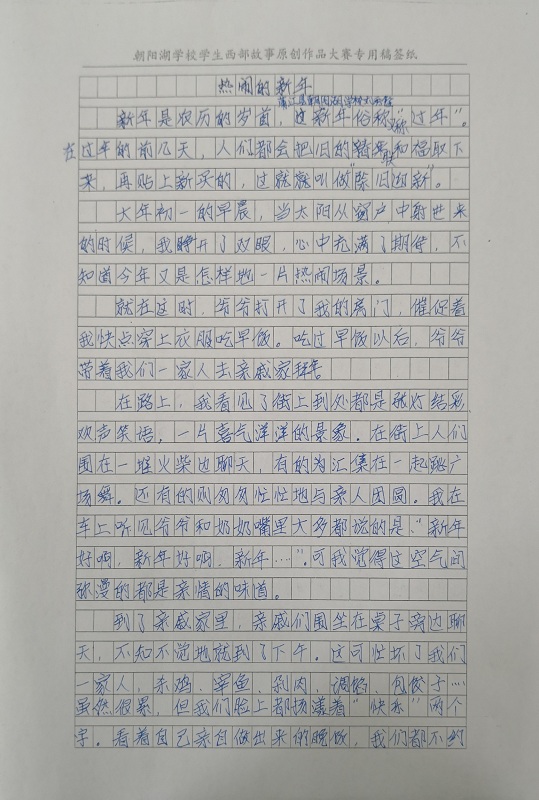 朝阳湖学校学生西部故事原创作品大赛专用稿签纸
热闹的新年
蒲江县朝阳湖学校
新年是农历的岁首，这新年俗称“过年”。
在过年的前几天，人们都会把旧的春联和福取下
来，再贴上新买的，这就就叫做“除旧迎新”。
大年初一的早晨，当太阳从窗户中射进来
的时候，我睁开了双眼，心中充满了期待，不
知道今年又是怎样地一片热闹场景。
就在这时，爷爷打开了我的房门，催促着
我快点穿上衣服吃早饭。吃过早饭以后，爷爷
带着我们一家人去亲戚家拜年
在路上，我看见了街上到处都是张灯结彩，
欢声笑语，一片喜气洋洋的景象．在街上人们
围在一堆火柴边聊天，有的为汇集在一起跳广
场舞。还有的则匆匆忙忙地与亲人团圆。我在
车上听见爷爷和奶奶嘴里大多都说的是、“新年
好啊，新年好啊，新年……”．可我觉得这空气间
弥漫的都是亲情的味道。
到了亲戚家里，亲戚们围坐在桌子旁边聊
天，不知不觉地就到了下午。这可忙坏了我们
一家人，杀鸡、宰鱼、剁肉、调馅、包饺子……
虽然很累，但我们脸上都扬溢着“快乐”两个
字。看着自己亲自做出来的晚饭，我们都不约